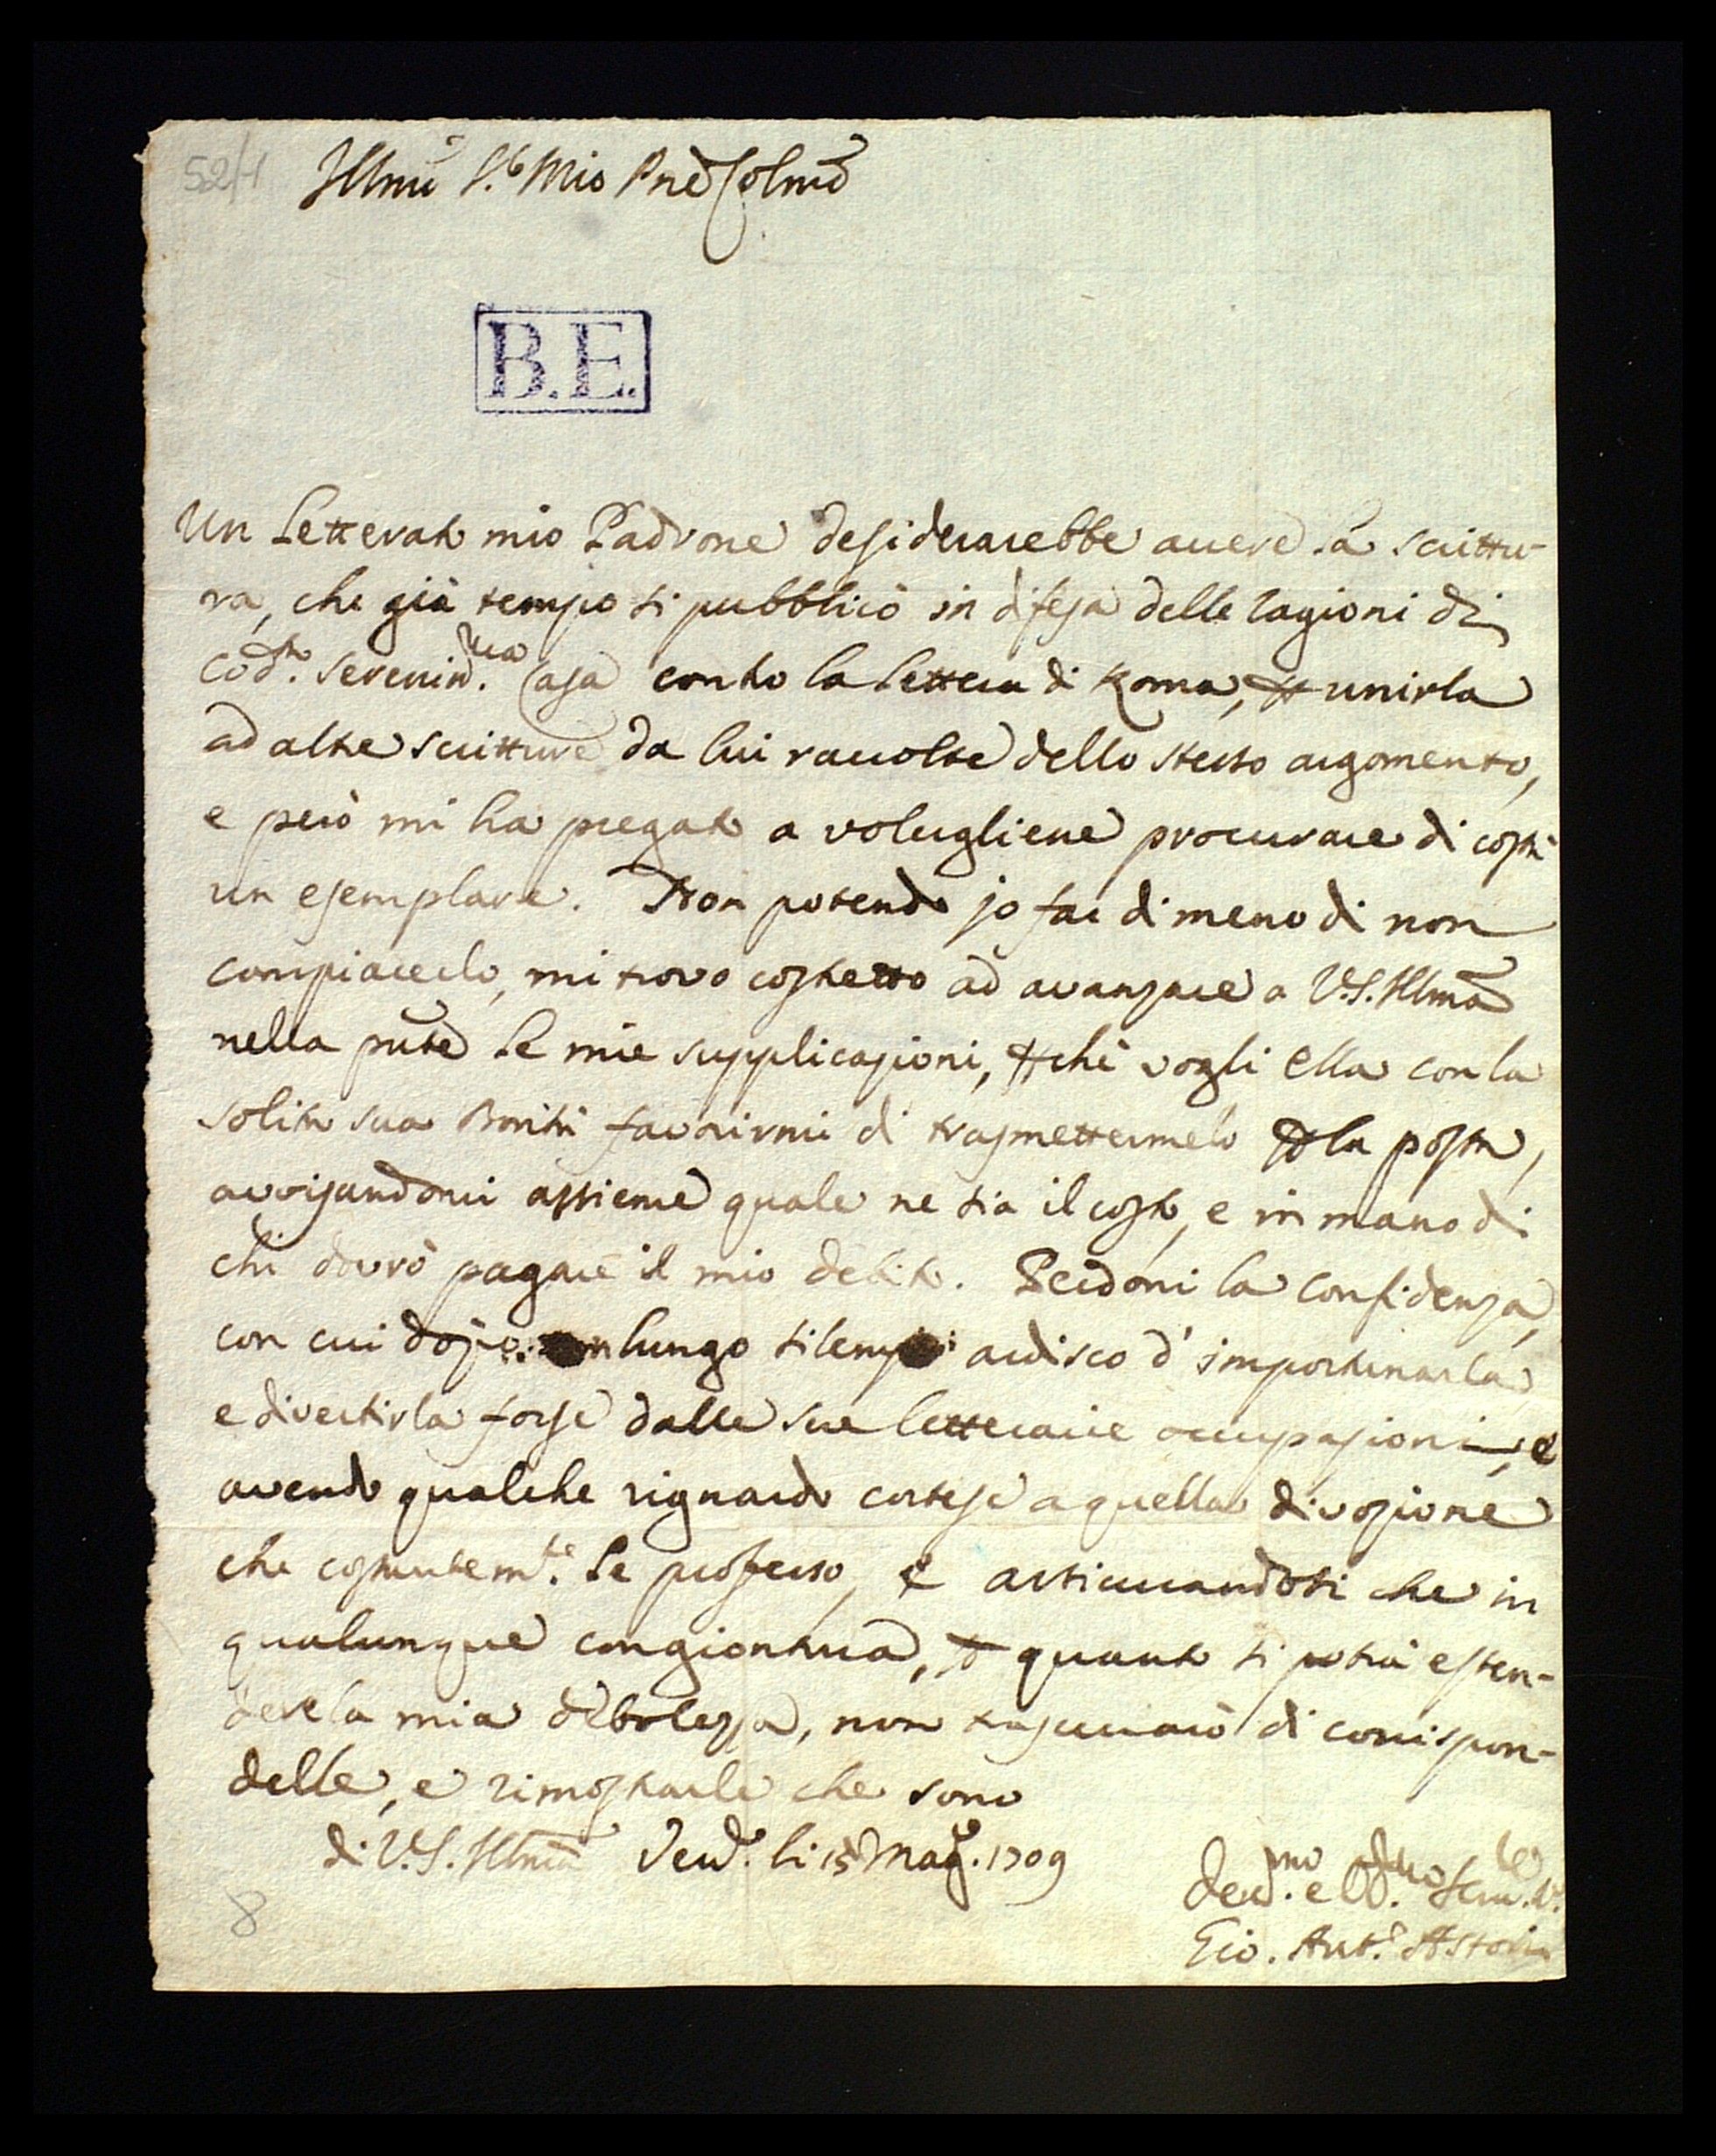 52/1
Illmo Sr Mio Pne Colmo
B.E.
Un Letterato mio Padrone desidererebbe avere la scrittu-
ra, che già tempo si pubblicò in difesa delle ragioni di
cod.ta Serenis.ma Casa contro la Lettera di Roma, p unirla
ad altre scritture da lui raccolte dello stesso argomento,
e però mi ha pregato a volergliene procurare di costì
un esemplare. Non potendo jo far di meno di non
compiacerlo, mi trovo costretto ad avanzare a V.S. Illma
nella pnte le mie supplicazioni, pchè vogli Ella con la
solita sua Bontà favorirmi di trasmettermelo p la posta,
avvisandomi assieme quale ne sia il costo, e in mano di
chi dovrò pagare il mio debito. Perdoni la confidenza,
con cui dopo un lungo silenzio ardisco d'importunarla
e divertirla forse dalle sue letterarie occupazioni, e
avendo qualche riguardo cortese a quella divozione
che costantem.te le professo, e assicurandosi che in
qualunque congiontura, p quanto si potrà esten-
dere la mia debolezza, non trascurarò di corrispon-
derle, e rimostrarle che sono
di V.S. Illma Ven.a li 15 Mag.o 1709
Dev.mo e Obb.mo Ser.re V.
Gio. Ant.o Astori
8